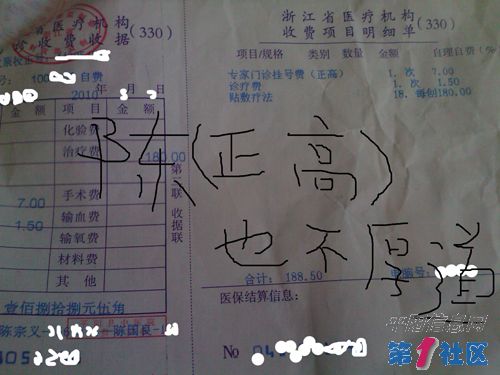 省医疗机构
收费收据 (330)
浙江省医疗机构
收费项目明细单 (330)
项目/规格 类别 数量 金额 自理自费(%)
专家门诊挂号费(正高) 1. 次 7.00
诊疗费 1. 次 1.50
贴敷疗法 18. 每创180.00
号: 100 自费
2010 年 月 日
金额 项目 金额
化验费
治疗费 180.00
7.00 手术费
1.50 输血费
输氧费
材料费
其他
第三联 收据联
(正高)
也不厚道
合计: 188.50
电脑号:
医保结算信息:
壹佰捌拾捌元伍角
陈宗义 陈国良
No
第1社区